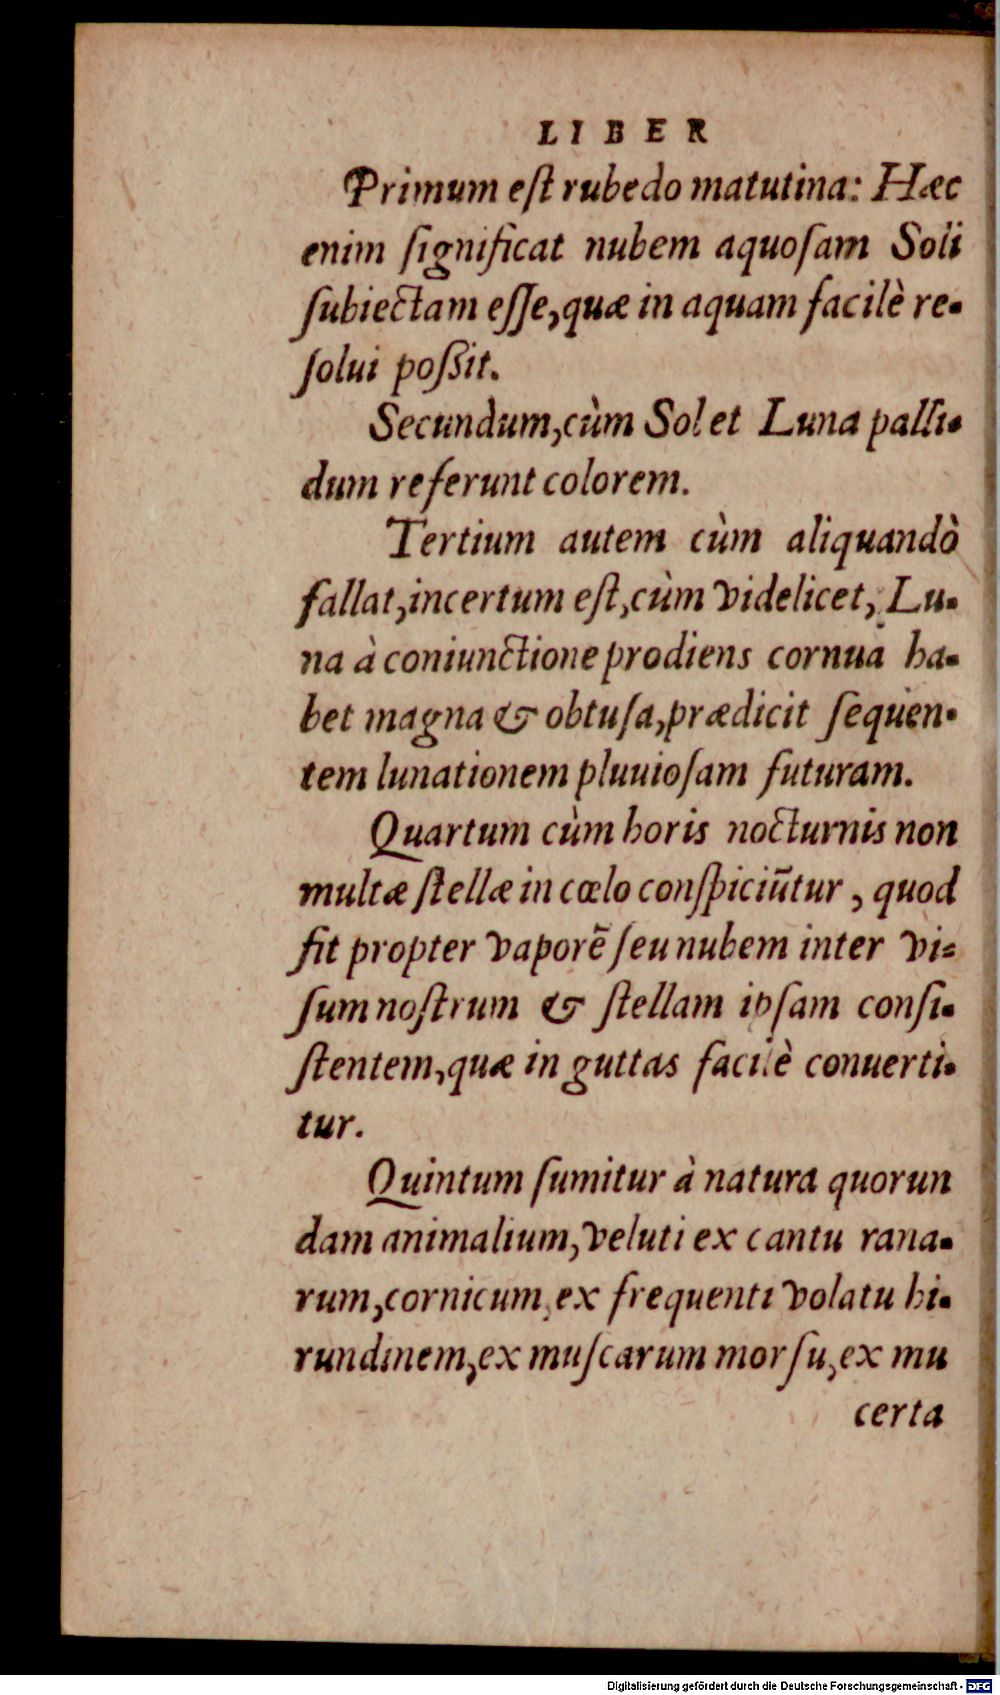 LIBER
Primum eſt rubedo matutina: Hæc
enim ſignificat nubem aquoſam Soli
ſubiectam eſſe, quæ in aquam facilè re-
ſolui poßit.
Secundum, cùm Sol et Luna palli-
dum referunt colorem.
Tertium autem cùm aliquandò
fallat, incertum eſt, cùm videlicet, Lu-
na à coniunctione prodiens cornua ha-
bet magna & obtuſa, prædicit ſequen-
tem lunationem pluuioſam futuram.
Quartum cùm horis nocturnis non
multæ ſtellæ in cœlo conſpiciũtur, quod
fit propter vaporẽ ſeu nubem inter vi-
ſum noſtrum & ſtellam ipſam conſi-
ſtentem, quæ in guttas facilè conuerti-
tur.
Quintum ſumitur à natura quorun
dam animalium, veluti ex cantu rana-
rum, cornicum, ex frequenti volatu hi-
rundinem, ex muſcarum morſu, ex mu
certa
Digitalisierung gefördert durch die Deutsche Forschungsgemeinschaft - DFG